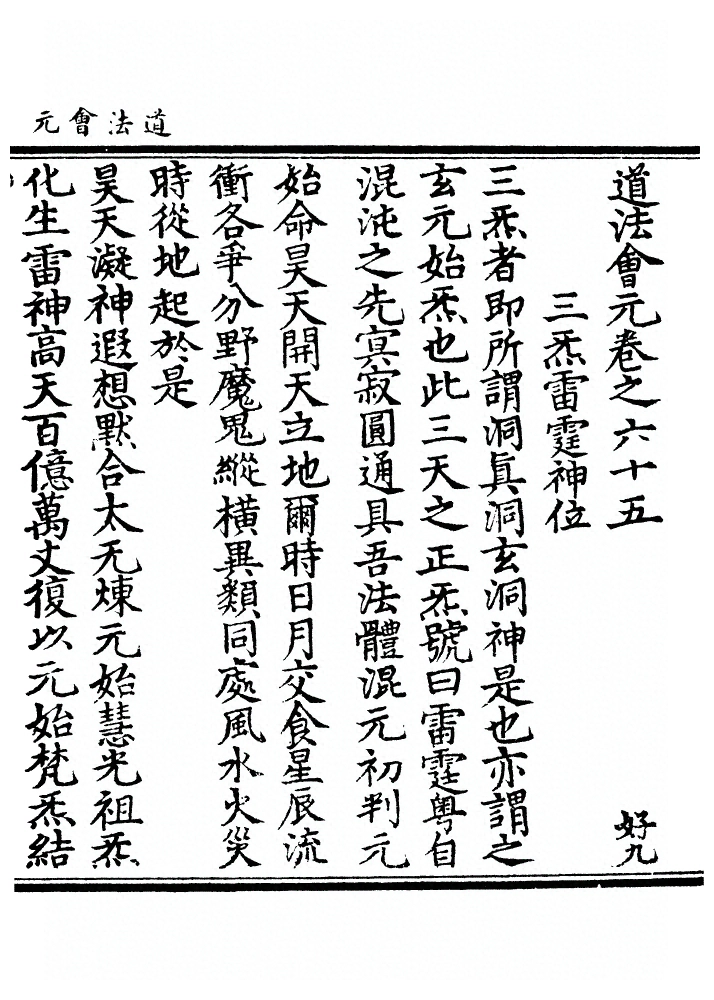 道法會元
道法會元卷之六十五
好九
三炁雷霆神位
三炁者即所謂洞眞洞玄洞神是也亦謂之
玄元始炁也此三天之正炁號曰雷霆粤自
混沌之先冥寂圓通具吾法體混元初判元
始命昊天開天立地爾時日月交食星辰流
衝各爭分野魔鬼縱橫異類同處風水火災
時從地起於是
昊天凝神遐想默合太无煉元始慧光祖炁
化生雷神高天百億萬丈復以元始梵炁結